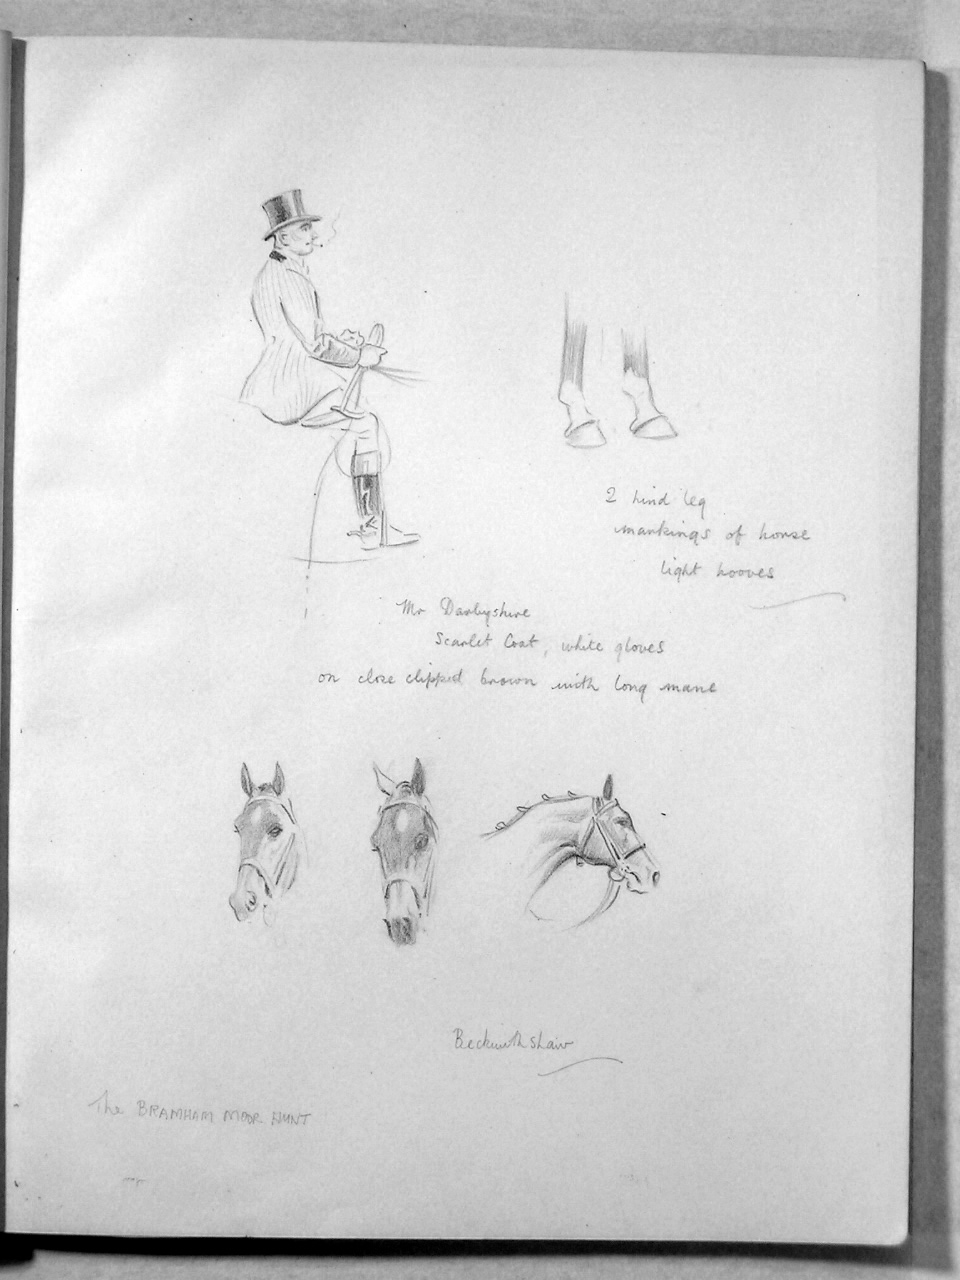 2 hind leg
markings of horse
light hooves
Mr Darbyshire
Scarlet Coat, white gloves
on close clipped brown with long mane
Beckwithshaw
The BRAMHAM MOOR HUNT